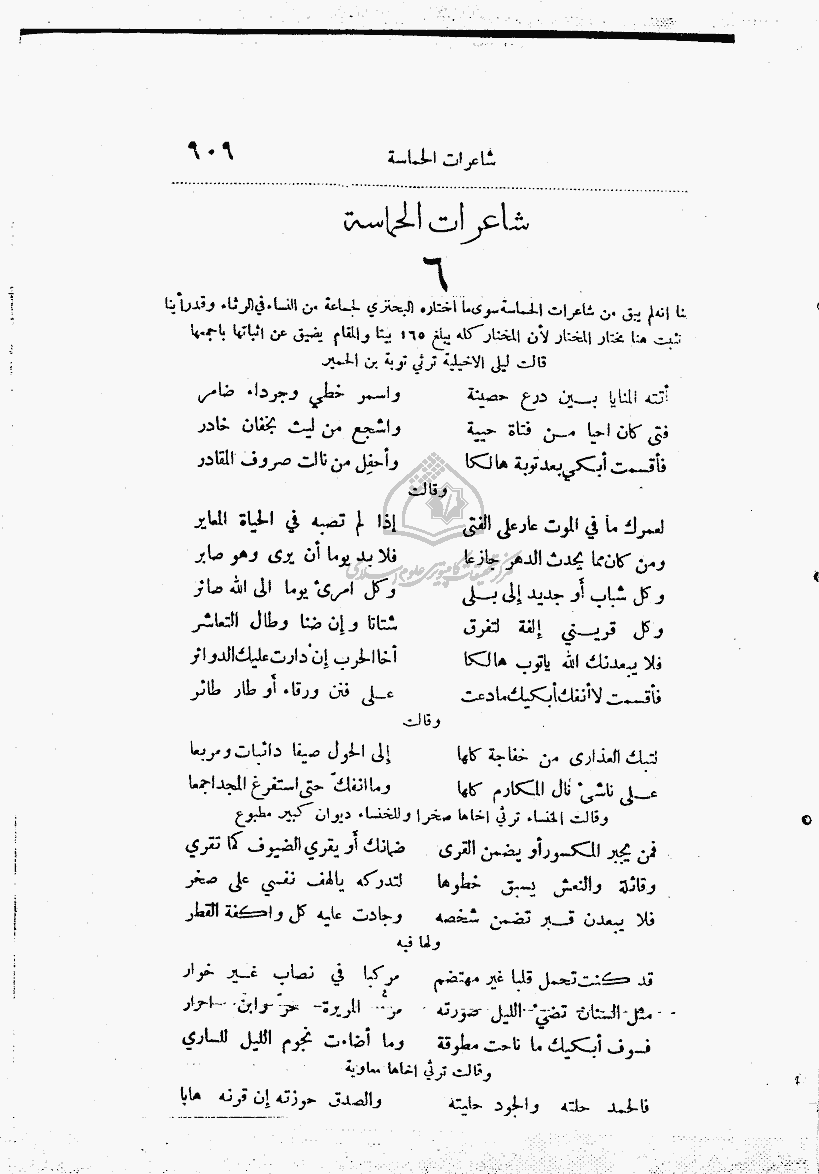 شاعرات الحماسة ٩٠٩
شاعرات الحماسة
٦
بنا انه لم يبق من شاعرات الحماسة سوى ما اختاره البحتري لجماعة من النساء في الرثاء وقد رأينا
نثبت هنا مختار المختار لأن المختار كله يبلغ ١٦٥ بيتا والمقام يضيق عن اثباتها باجمعها
قالت ليلى الاخيلية ترثي توبة بن الحمير
أتته المنايا بين درع حصينة واسمر خطي وجرداء ضامر
فتى كان احيا من فتاة حيية واشجع من ليث بخفان خادر
فأقسمت أبكي بعد توبة هالكا وأحفل من نالت صروف المقادر
وقالت
لعمرك ما في الموت عار على الفتى إذا لم تصبه في الحياة المعاير
ومن كان مما يحدث الدهر جازعا فلا بد يوما أن يرى وهو صابر
وكل شباب أو جديد إلى بلى وكل امرئ يوما الى الله صائر
وكل قريني إلفة لتفرق شتاتا وإن ضنا وطال التعاشر
فلا يبعدنك الله ياتوب هالكا أخا الحرب إن دارت عليك الدوائر
فأقسمت لا أنفك أبكيك مادعت على فنن ورقاء أو طار طائر
وقالت
لتبك العذارى من خفاجة كلها إلى الحول صيفا دائبات ومربعا
على ناشئ نال المكارم كلها وما انفك حتى استفرغ المجد اجمعا
وقالت الخنساء ترثي اخاها صخرا وللخنساء ديوان كبير مطبوع
فمن يجبر المكسور أو يضمن القرى ضمانك أو يقري الضيوف كما تقري
وقائلة والنعش يسبق خطوها لتدركه يالهف نفسي على صخر
فلا يبعدن قبر تضمن شخصه وجادت عليه كل واكفة القطر
ولها فيه
قد كنت تحمل قلبا غير مهتضم مركبا في نصاب غير خوار
مثل السنان تضيء الليل صورته مرُّ المريرة حرّ وابن احرار
فسوف أبكيك ما ناحت مطوقة وما أضاءت نجوم الليل للساري
وقالت ترثي اخاها معاوية
فالحمد حلته والجود حليته والصدق حوزته إن قرنه هابا